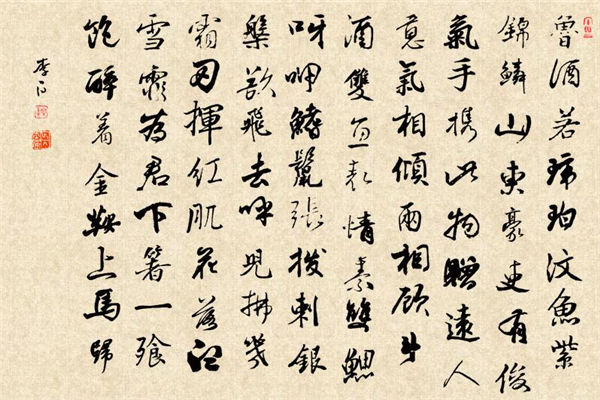 魯酒若琥珀汶魚紫
錦鱗山東豪吏有俊
氣手携此物贈遠人
意氣相傾兩相顧斗
酒雙魚表情素雙鰓
呀呷鰭鬣張撥剌銀
槃欲飛去呼兒拂几
霜刃揮紅肌花落白
雪霏為君下箸一飡
飽醉着金鞍上馬歸
李白